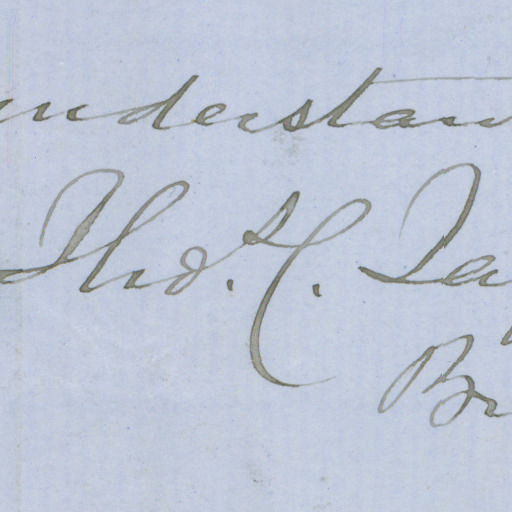 understan
Thos. C. La
Br